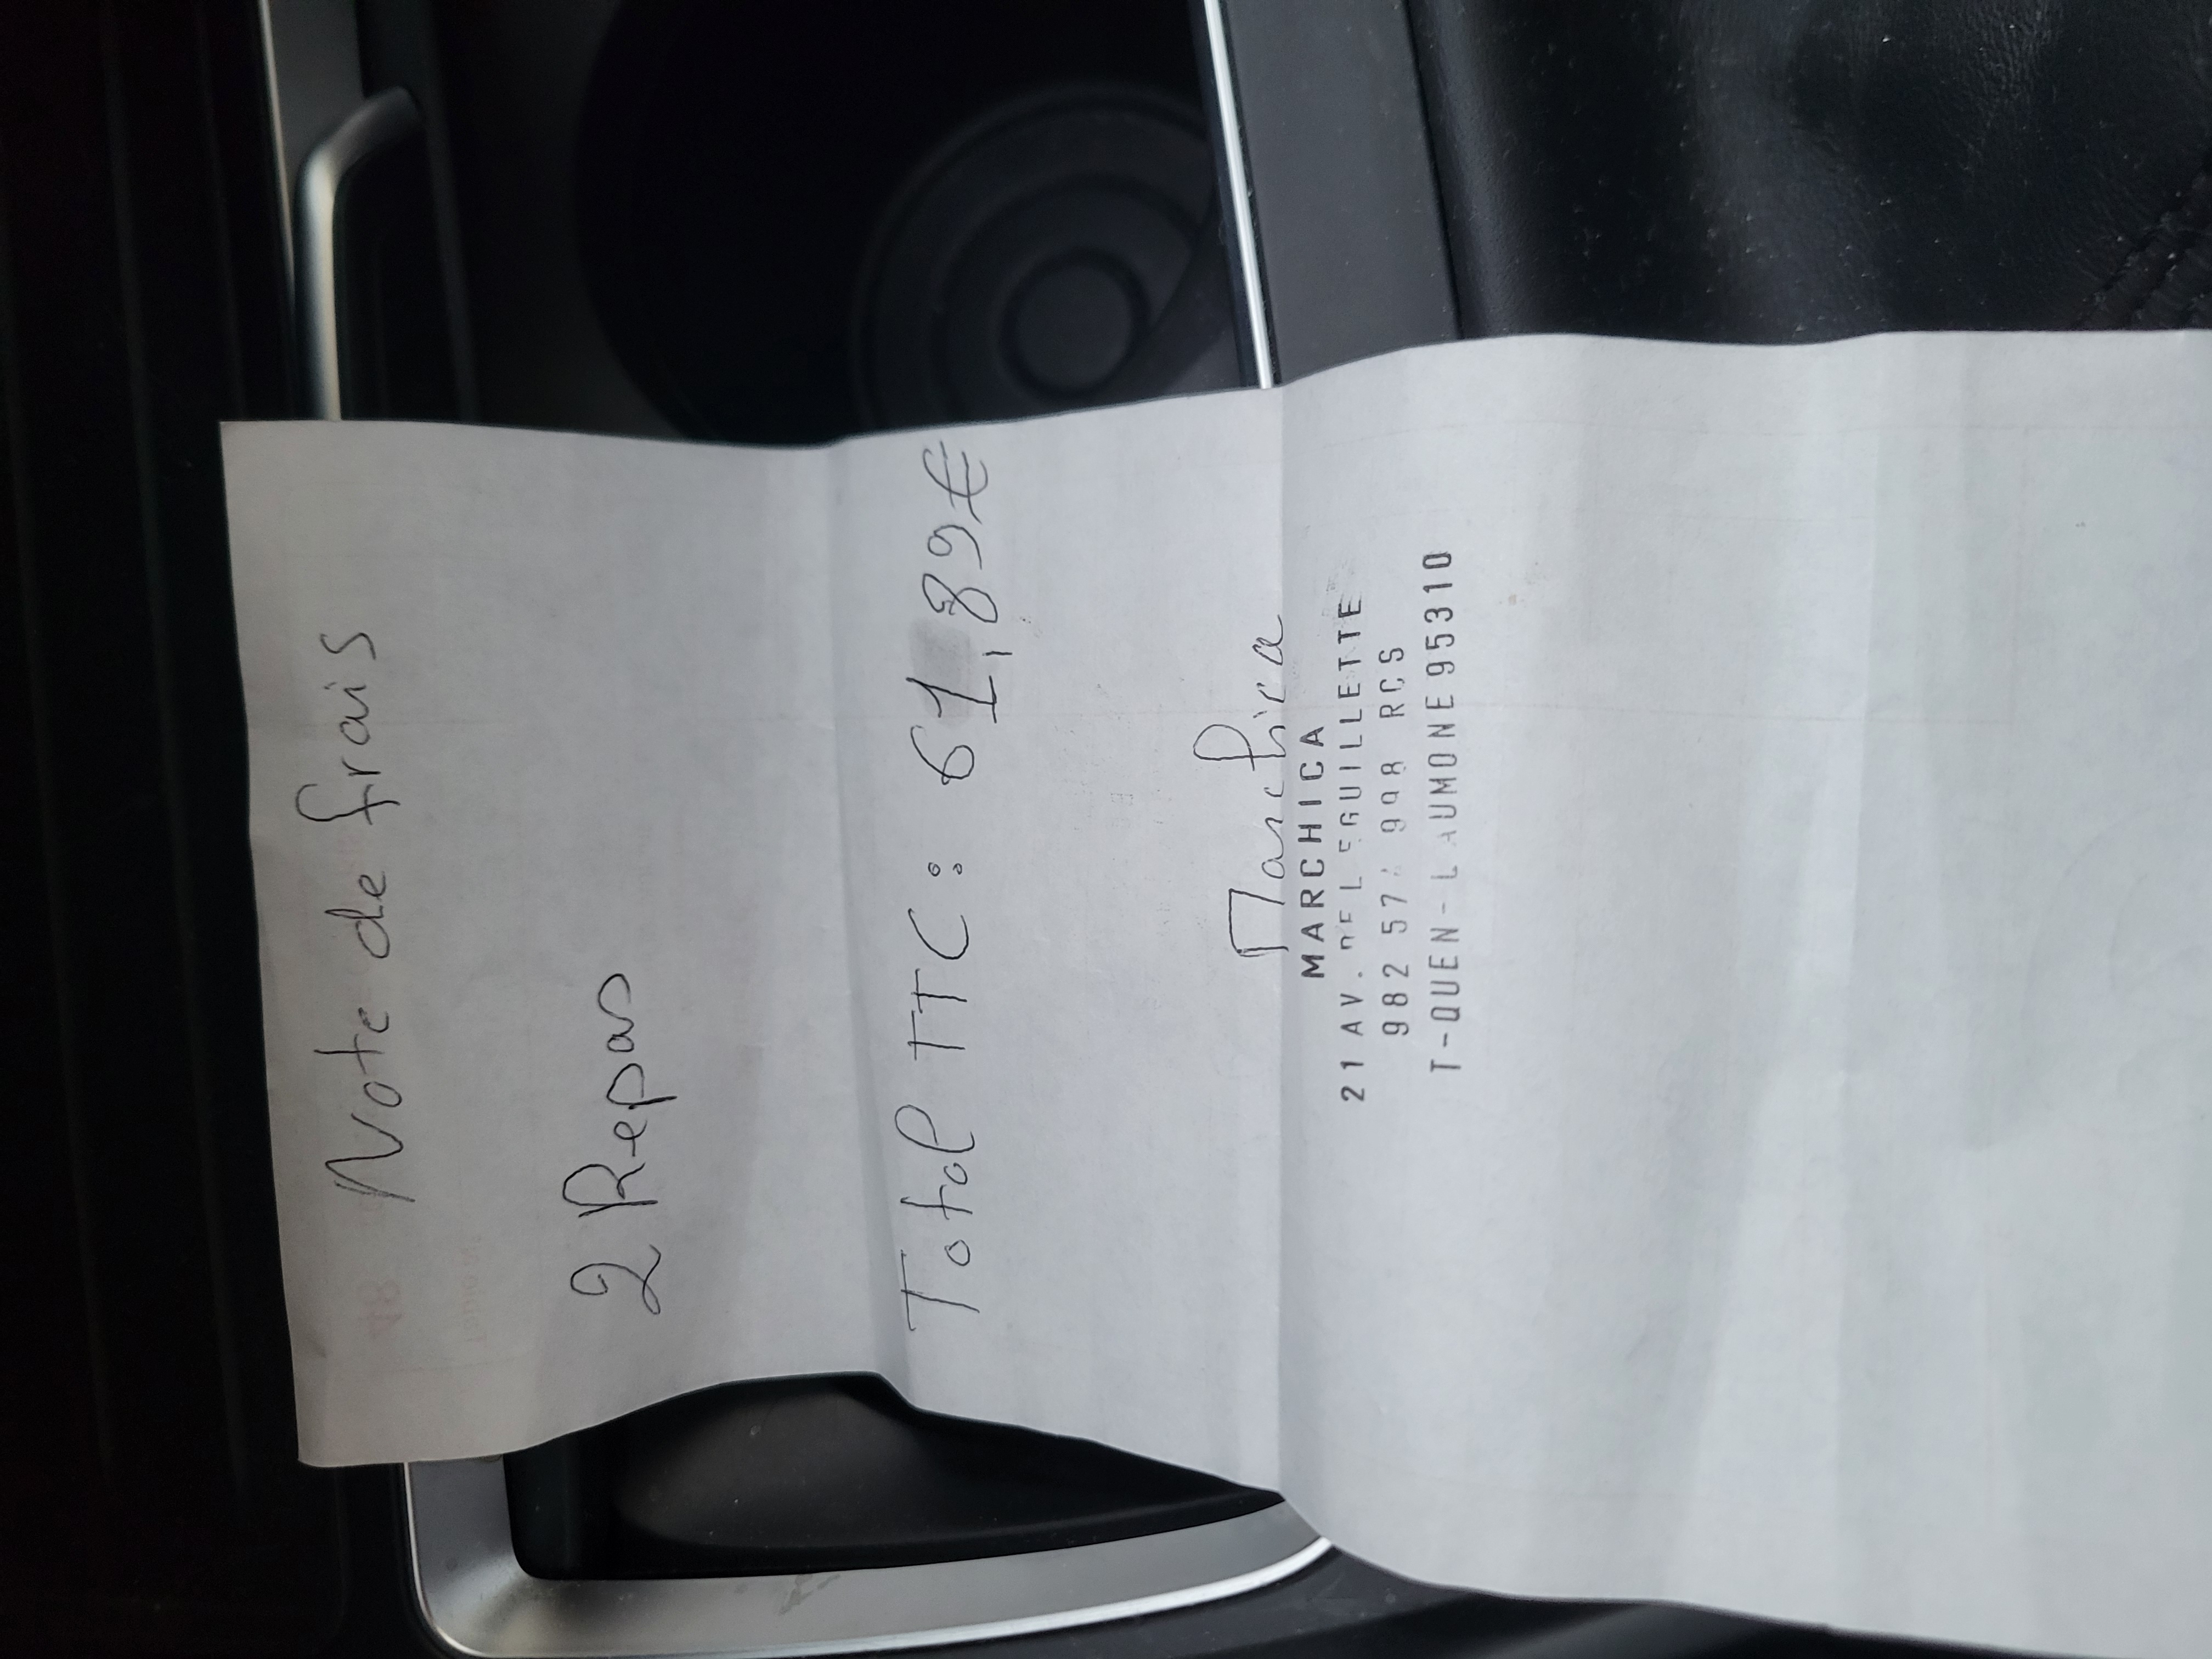 Note de frais
2 Repas
Total TTC : 61,89€
Marchica
MARCHICA
21 AV. DE L EGUILLETTE
982 57 998 RCS
T-OUEN-L AUMONE 95310